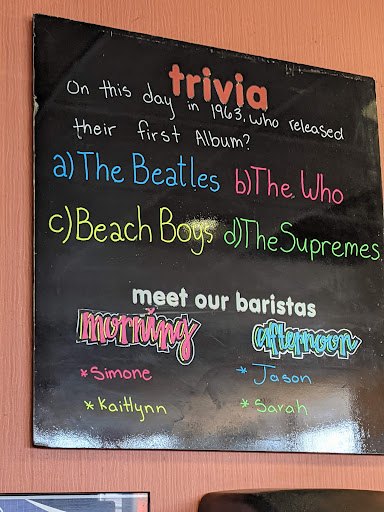 trivia
On this day in 1963, who released
their first Album?
a) The Beatles b) The Who
c) Beach Boys d) The Supremes
meet our baristas
morning afternoon
* Simone * Jason
* Kaitlynn * Sarah